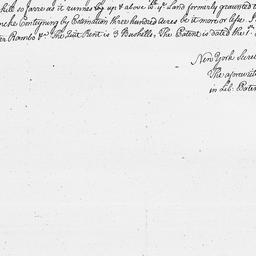 kill so farre as it runnes by up & above to yᵉ Land formerly graunted
Conteyning by Estimation three hundred Acres be it more or lesse.
Rambo &c. The Quit Rent is 3 Bushells, The Patent is dated the 1.
New York
The aforewrit
in Lib: